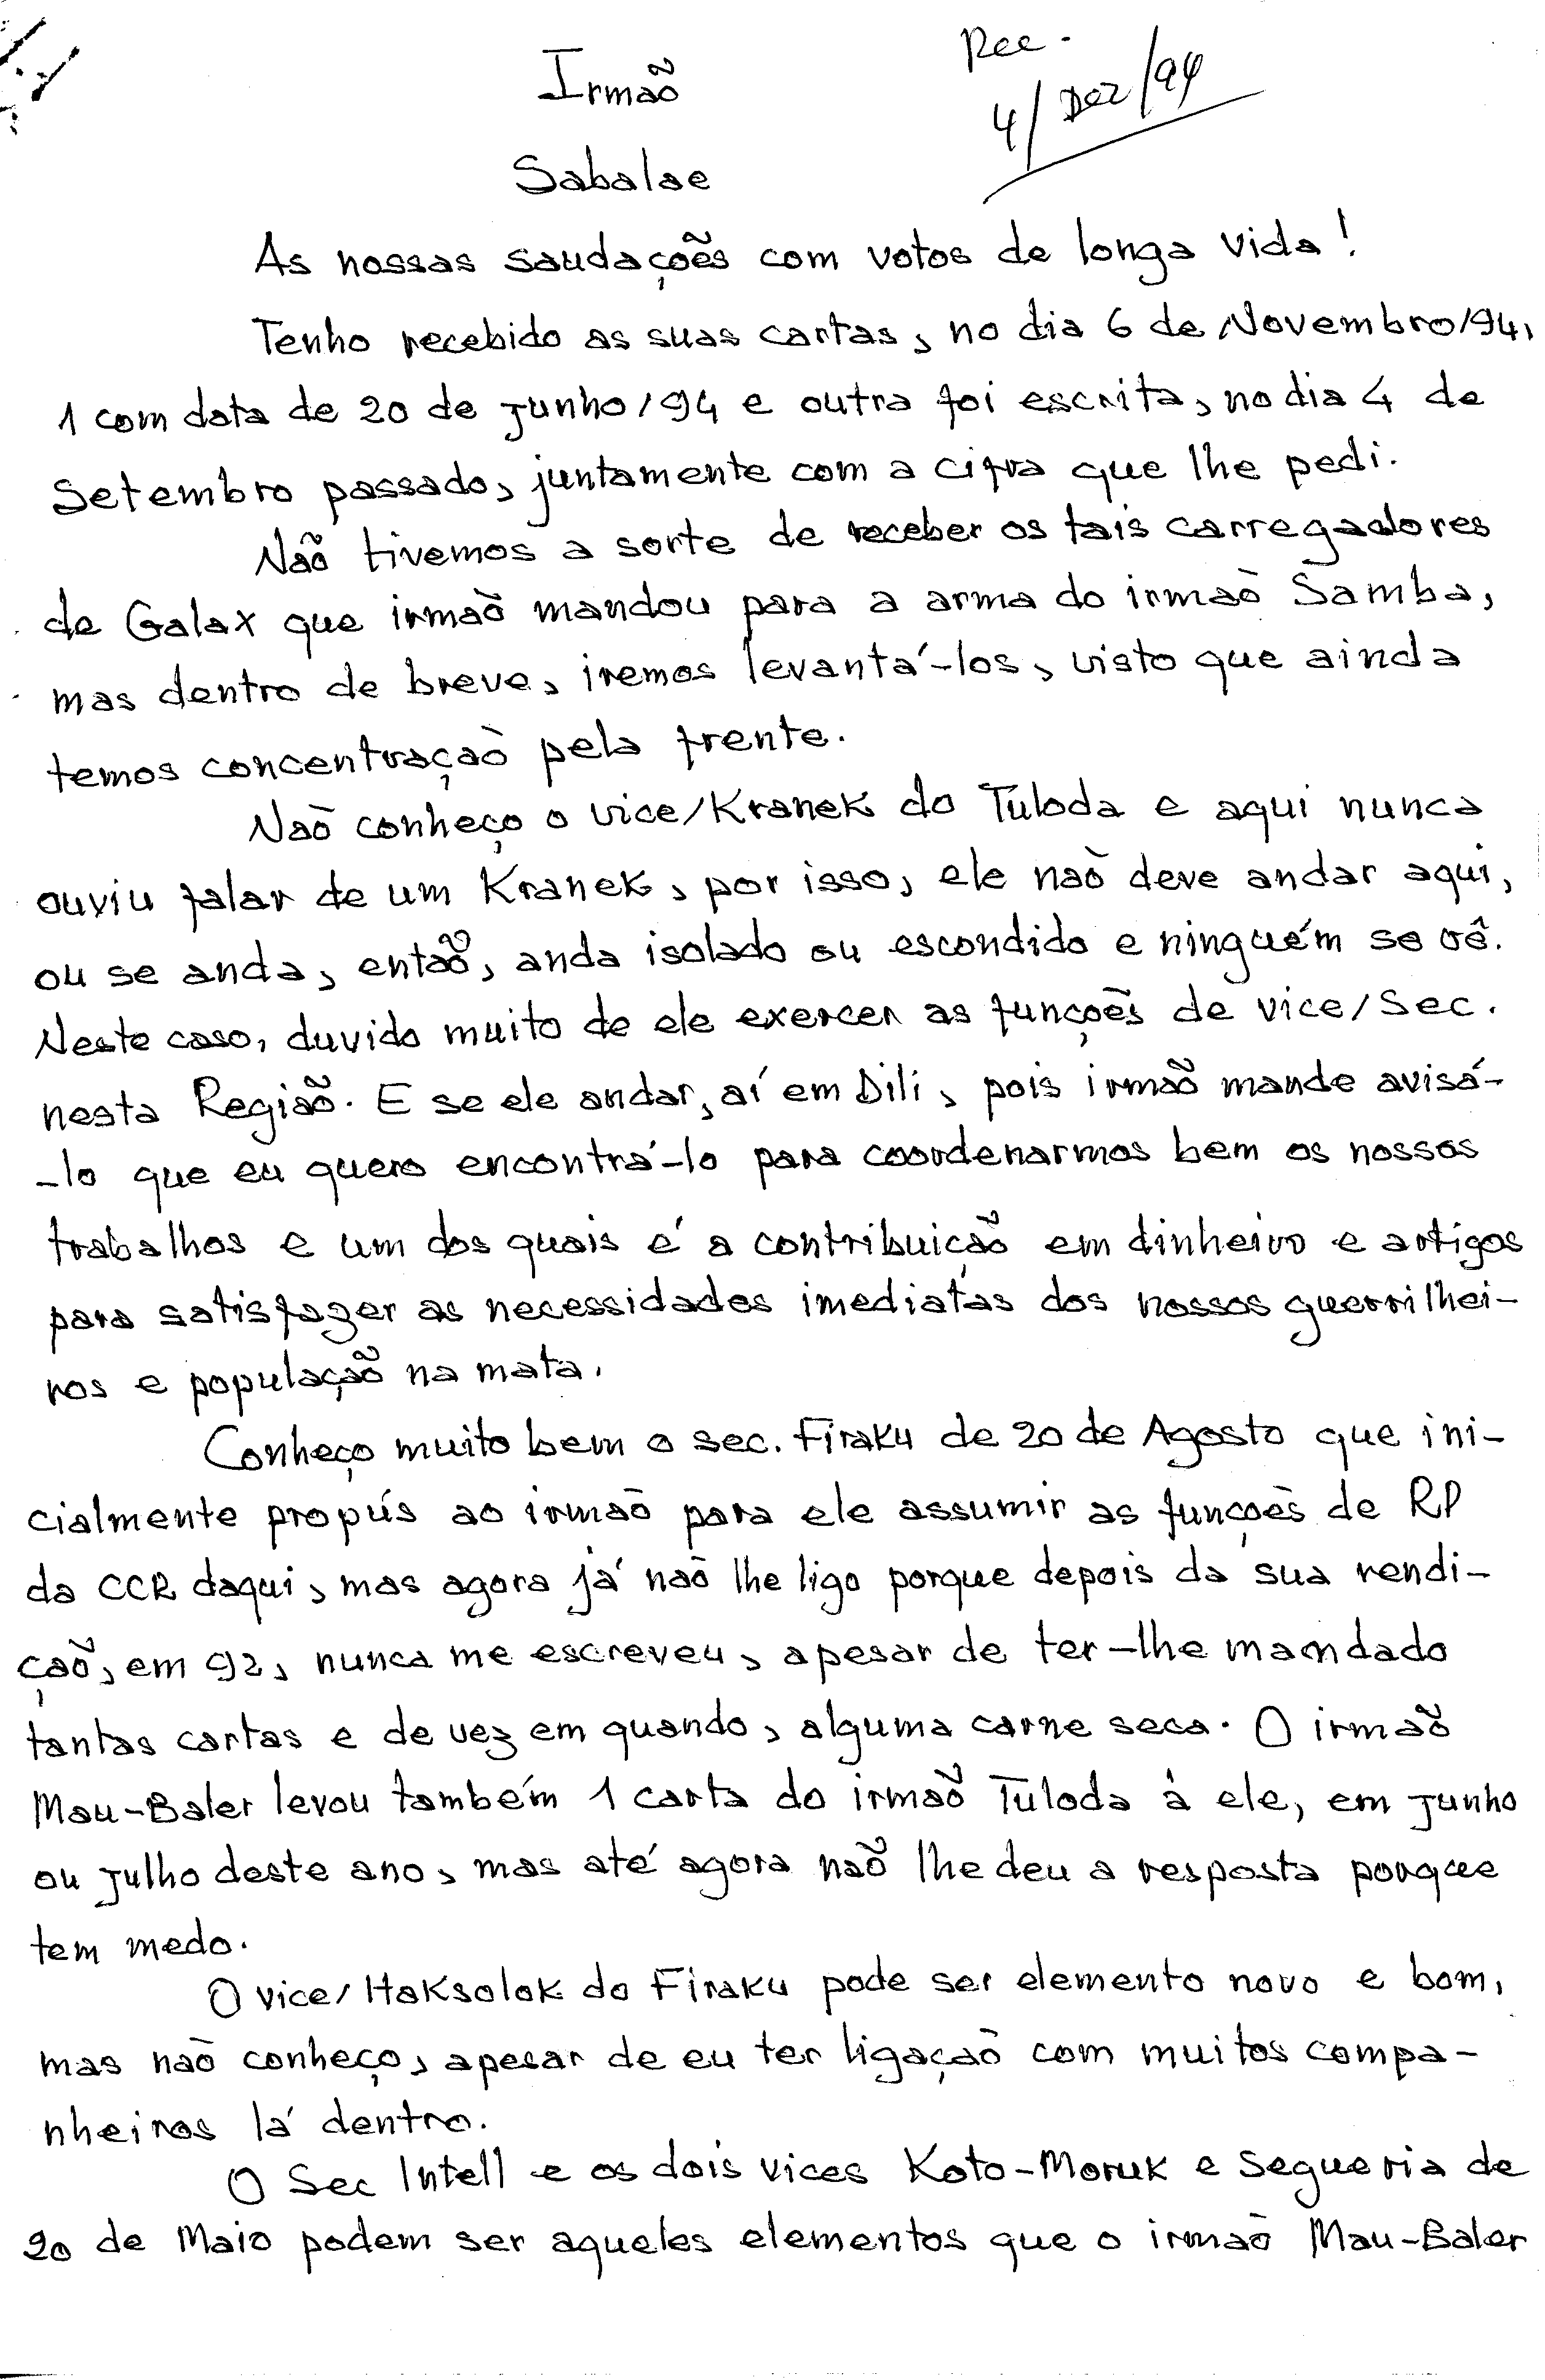 Irmão
Rec.
4/Dez/94
Sabalae
As nossas saudações com votos de longa vida!
Tenho recebido as suas cartas, no dia 6 de Novembro/94,
1 com data de 20 de Junho/94 e outra foi escrita, no dia 4 de
Setembro passado, juntamente com a cifra que lhe pedi.
Não tivemos a sorte de receber os tais carregadores
de Galax que irmão mandou para a arma do irmão Samba,
mas dentro de breve, iremos levantá-los, visto que ainda
temos concentração pela frente.
Não conheço o vice/Kranek do Tuloda e aqui nunca
ouviu falar de um Kranek, por isso, ele não deve andar aqui,
ou se anda, então, anda isolado ou escondido e ninguém se vê.
Neste caso, duvido muito de ele exercer as funções de vice/Sec.
nesta Região. E se ele andar, aí em Dili, pois irmão mande avisá-
-lo que eu quero encontrá-lo para coordenarmos bem os nossos
trabalhos e um dos quais é a contribuição em dinheiro e artigos
para satisfazer as necessidades imediatas dos nossos guerrilhei-
ros e população na mata.
Conheço muito bem o sec. Firaku de 20 de Agosto que ini-
cialmente propús ao irmão para ele assumir as funções de RP
da CCR daqui, mas agora já não lhe ligo porque depois da sua rendi-
ção, em 92, nunca me escreveu, apesar de ter-lhe mandado
tantas cartas e de vez em quando, alguma carne seca. O irmão
Mau-Baler levou também 1 carta do irmão Tuloda à ele, em Junho
ou Julho deste ano, mas até agora não lhe deu a resposta porque
tem medo.
O vice/Haksolok do Firaku pode ser elemento novo e bom,
mas não conheço, apesar de eu ter ligação com muitos compa-
nheiros lá dentro.
O Sec Intell e os dois vices Koto-Moruk e Segueria de
20 de Maio podem ser aqueles elementos que o irmão Mau-Baler